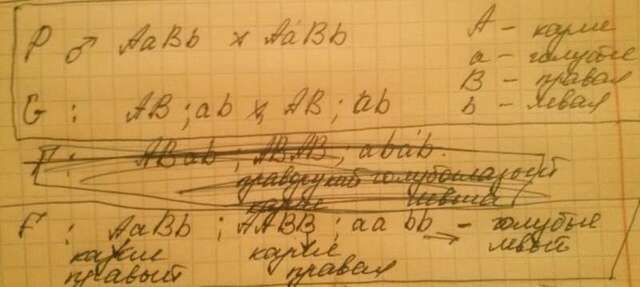 P ♂ AaBb × AaBb
A - карие
a - голубые
B - правая
b - левая
G : AB ; ab × AB ; ab
F : ABab ; ABAB ; abab.
голубоглазый
карие левша
F : AaBb ; AABB ; aa bb - голубые
карие карие левый
правый правая